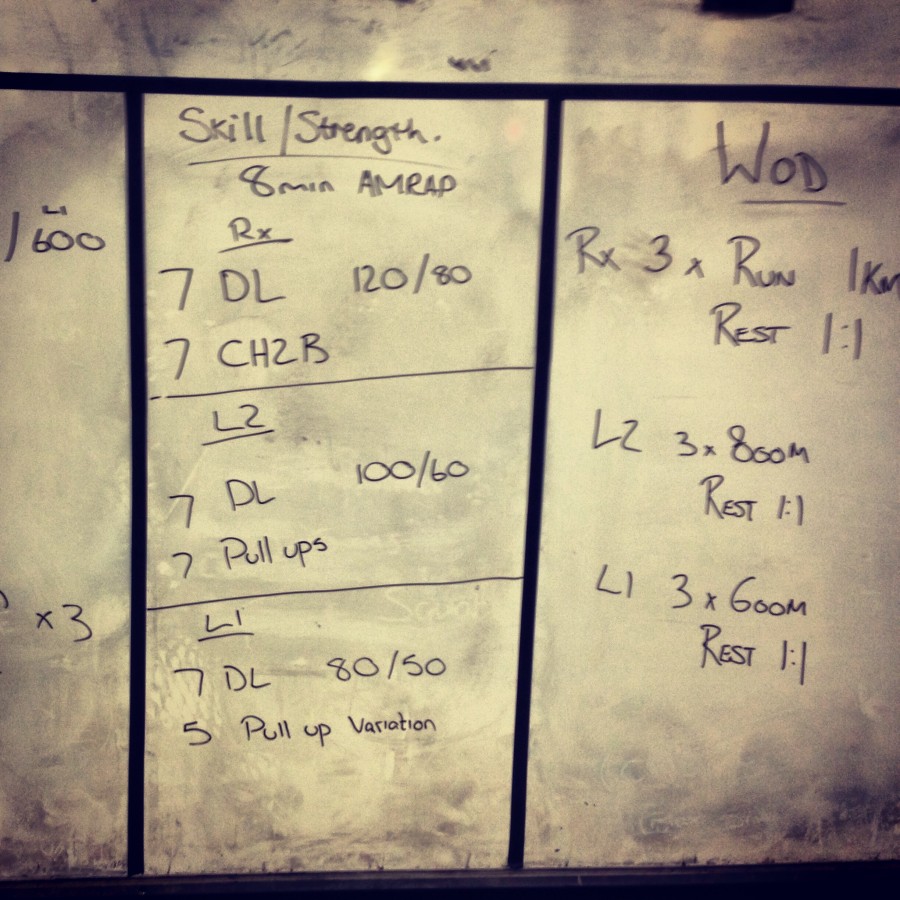 L1
/600
x3
Skill/Strength.
8min AMRAP
Rx
7 DL 120/80
7 CH2B
L2
7 DL 100/60
7 Pull ups
L1
7 DL 80/50
5 Pull up Variation
WOD
Rx 3 x Run 1km
Rest 1:1
L2 3 x 800m
Rest 1:1
L1 3 x 600m
Rest 1:1